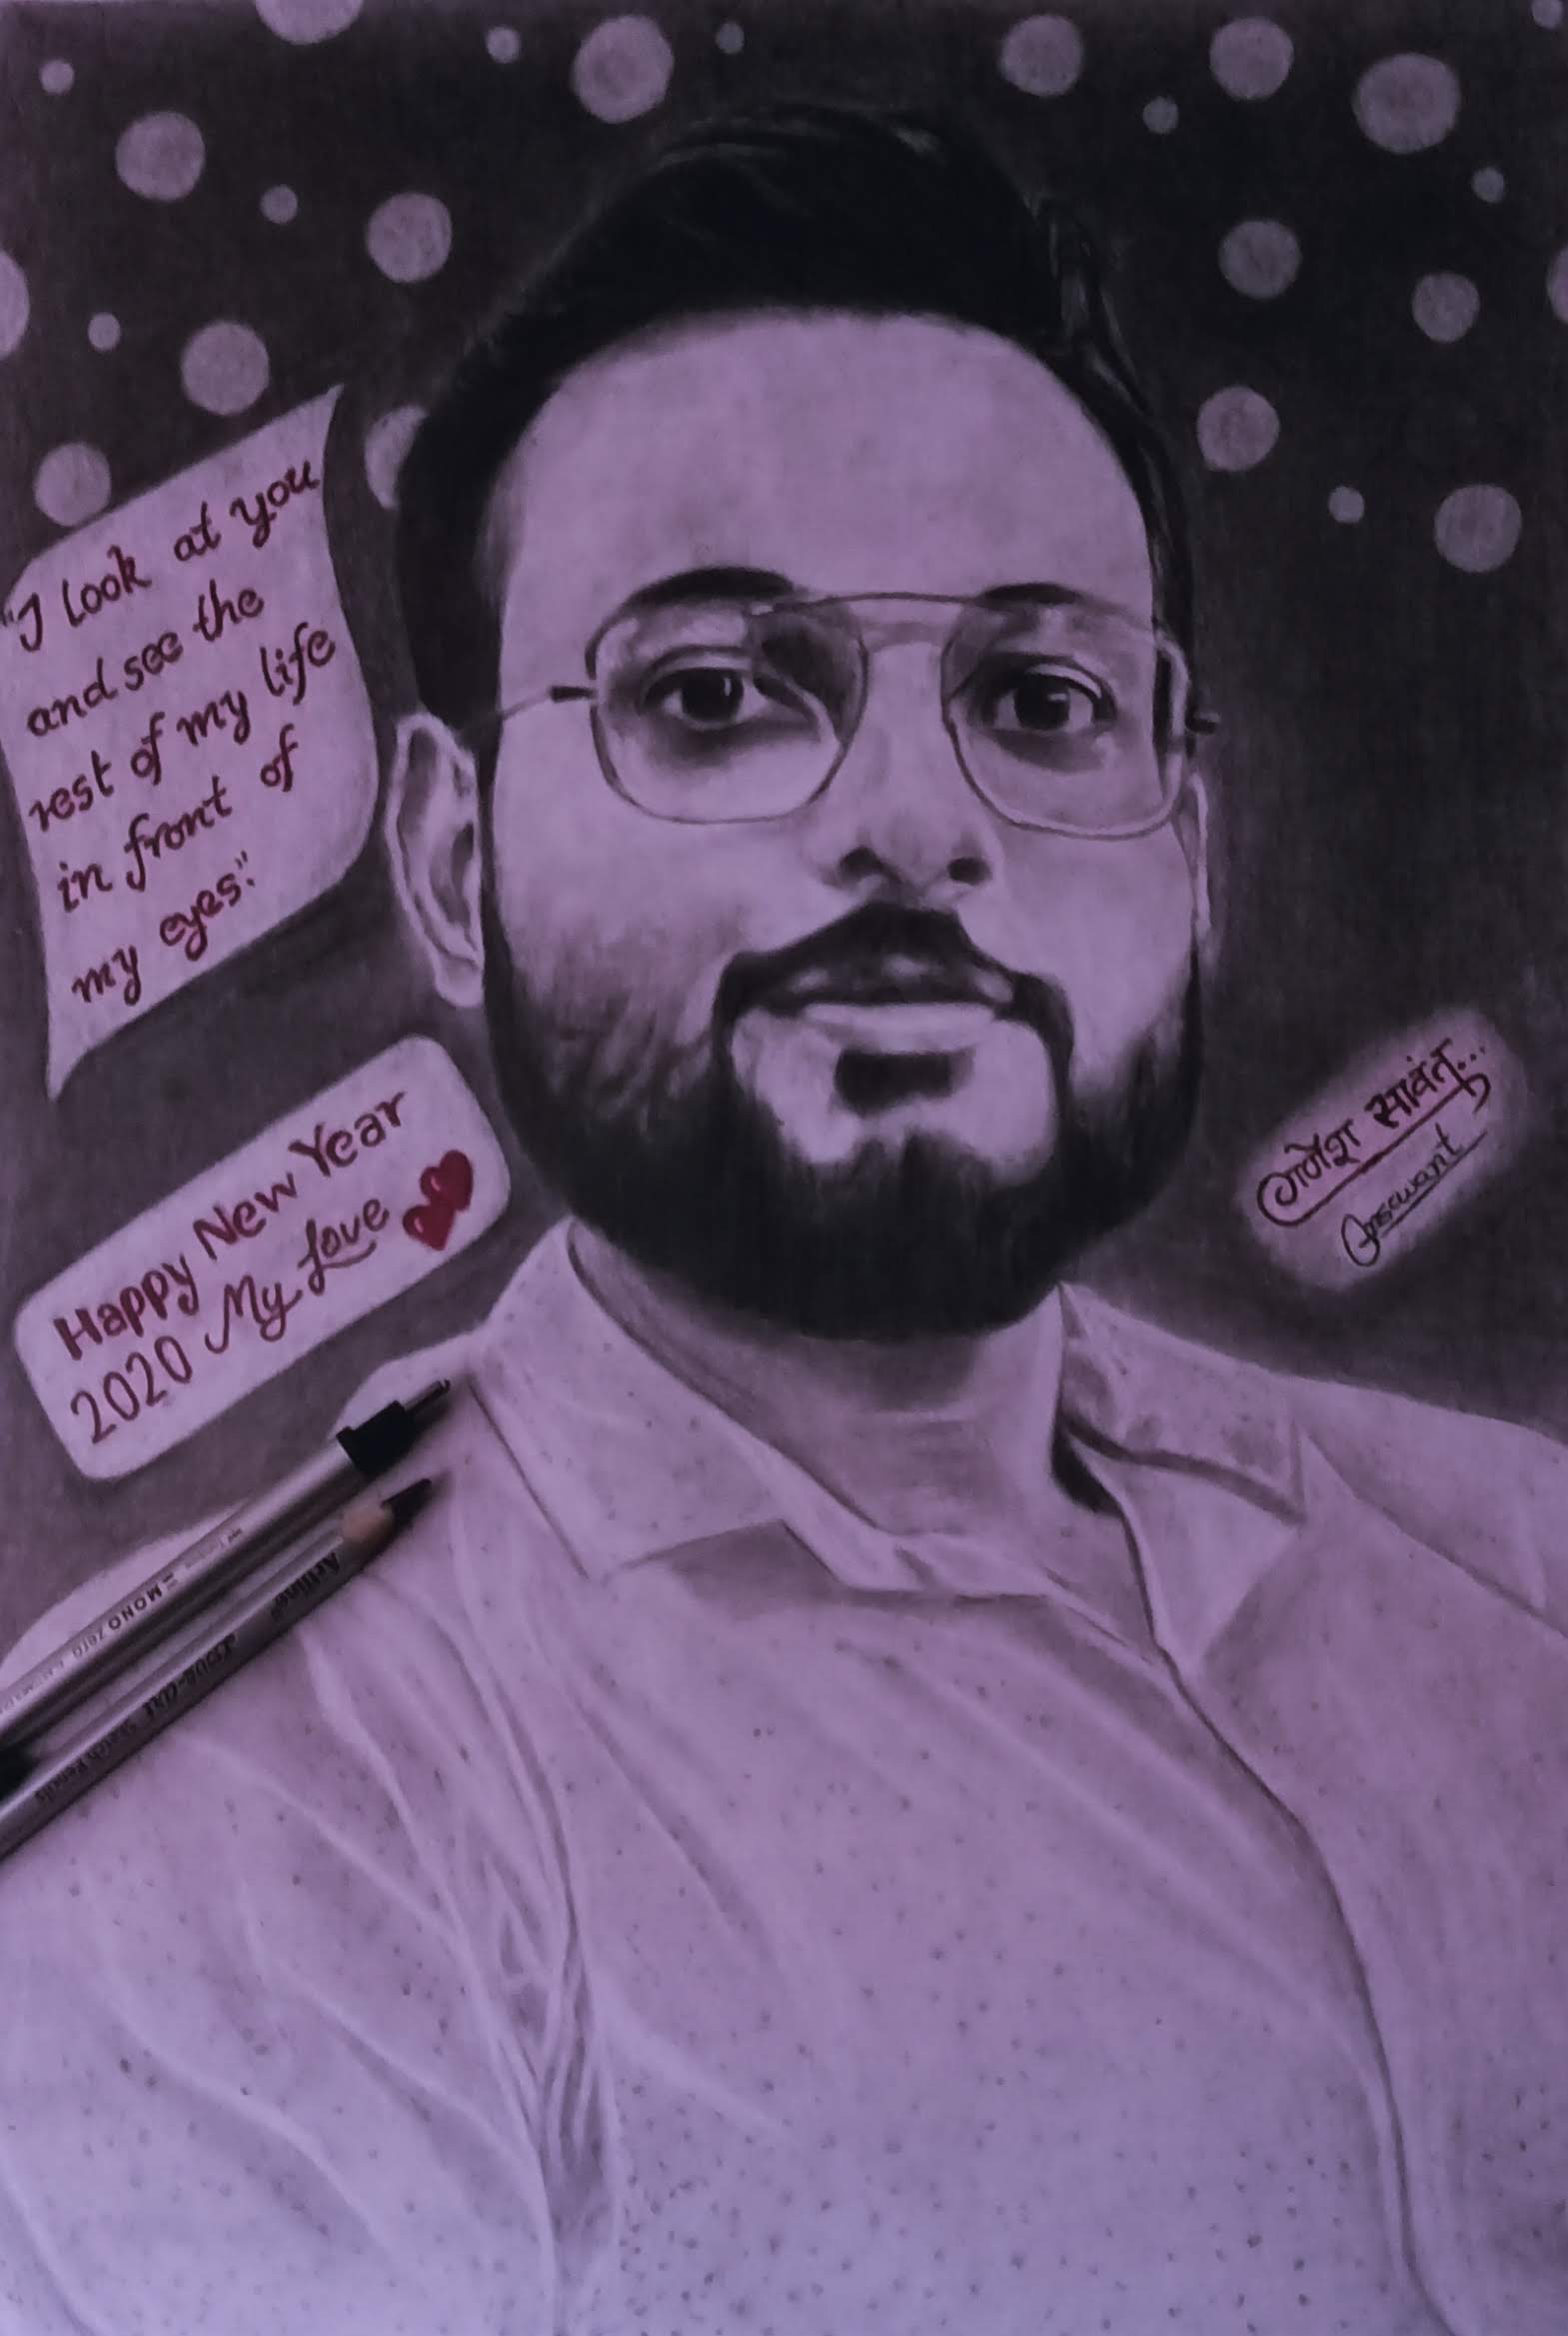 "I Look at you
and see the
rest of my life
in front of
my eyes".
Happy New Year
2020 My Love
गणेश सावंत...
MONO zero
Artline
Sketch Pencils